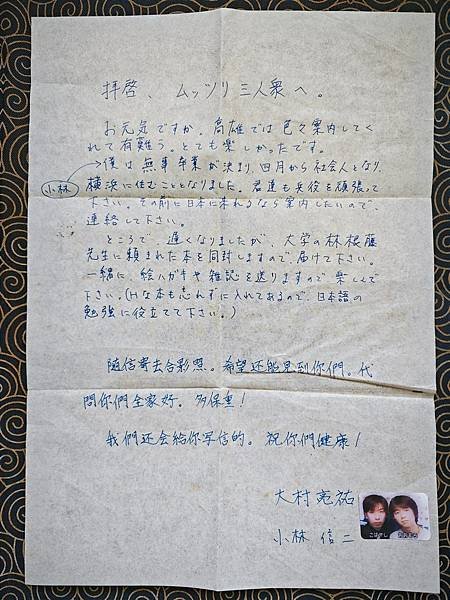 拝啓、ムッツリ三人衆へ。
お元気ですか。高雄では色々案内してく
れて有難う。とても楽しかったです。
小林→僕は無事卒業が決まり、四月から社会人となり
横浜に住むこととなりました。君達も兵役を頑張って
下さい。その前に日本に来れるなら案内したいので、
連絡して下さい。
ところで、遅くなりましたが、大学の林根藤
先生に頼まれた本を同封しますので、届けて下さい。
一緒に、絵ハガキや雑誌を送りますので楽しんで
下さい。(Hな本も忘れずに入れてあるので、日本語の
勉強に役立てて下さい。)
随信寄去合影照。希望还能見到你們。代
問你們全家好。多保重!
我們还会給你写信的。祝你們健康!
大村亮祐
小林信二
こばやし
おおむら